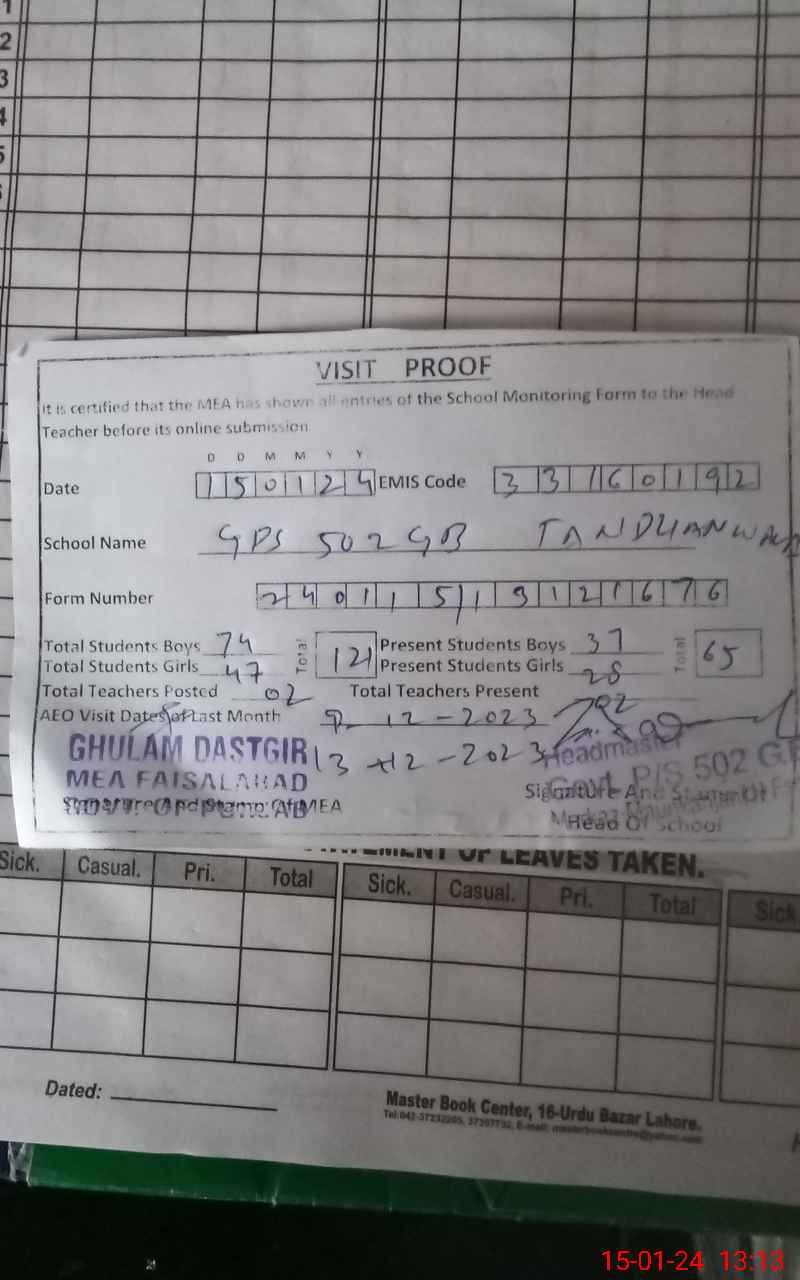 1
2
3
4
5
VISIT PROOF
It is certified that the MEA has shown all entries of the School Monitoring Form to the Head
Teacher before its online submission.
D D M M Y Y
Date 150124 EMIS Code 33160192
School Name GPS 502 GB TANDLIANWALA
Form Number
Total Students Boys 74 Total 121 Present Students Boys 37 Total 65
Total Students Girls 47 Present Students Girls 28
Total Teachers Posted 02 Total Teachers Present 02
AEO Visit Dates of Last Month 9-12-2023
13-12-2023
GHULAM DASTGIR
MEA FAISALABAD
GOVT OF PUNJAB
Signature And Stamp Of MEA
Headmaster
Govt. P/S 502 G.B
Signature And Stamp Of
Head Of School
STATEMENT OF LEAVES TAKEN.
Sick. Casual. Pri. Total Sick. Casual. Pri. Total Sick
Dated:
Master Book Center, 16-Urdu Bazar Lahore.
15-01-24 13:13